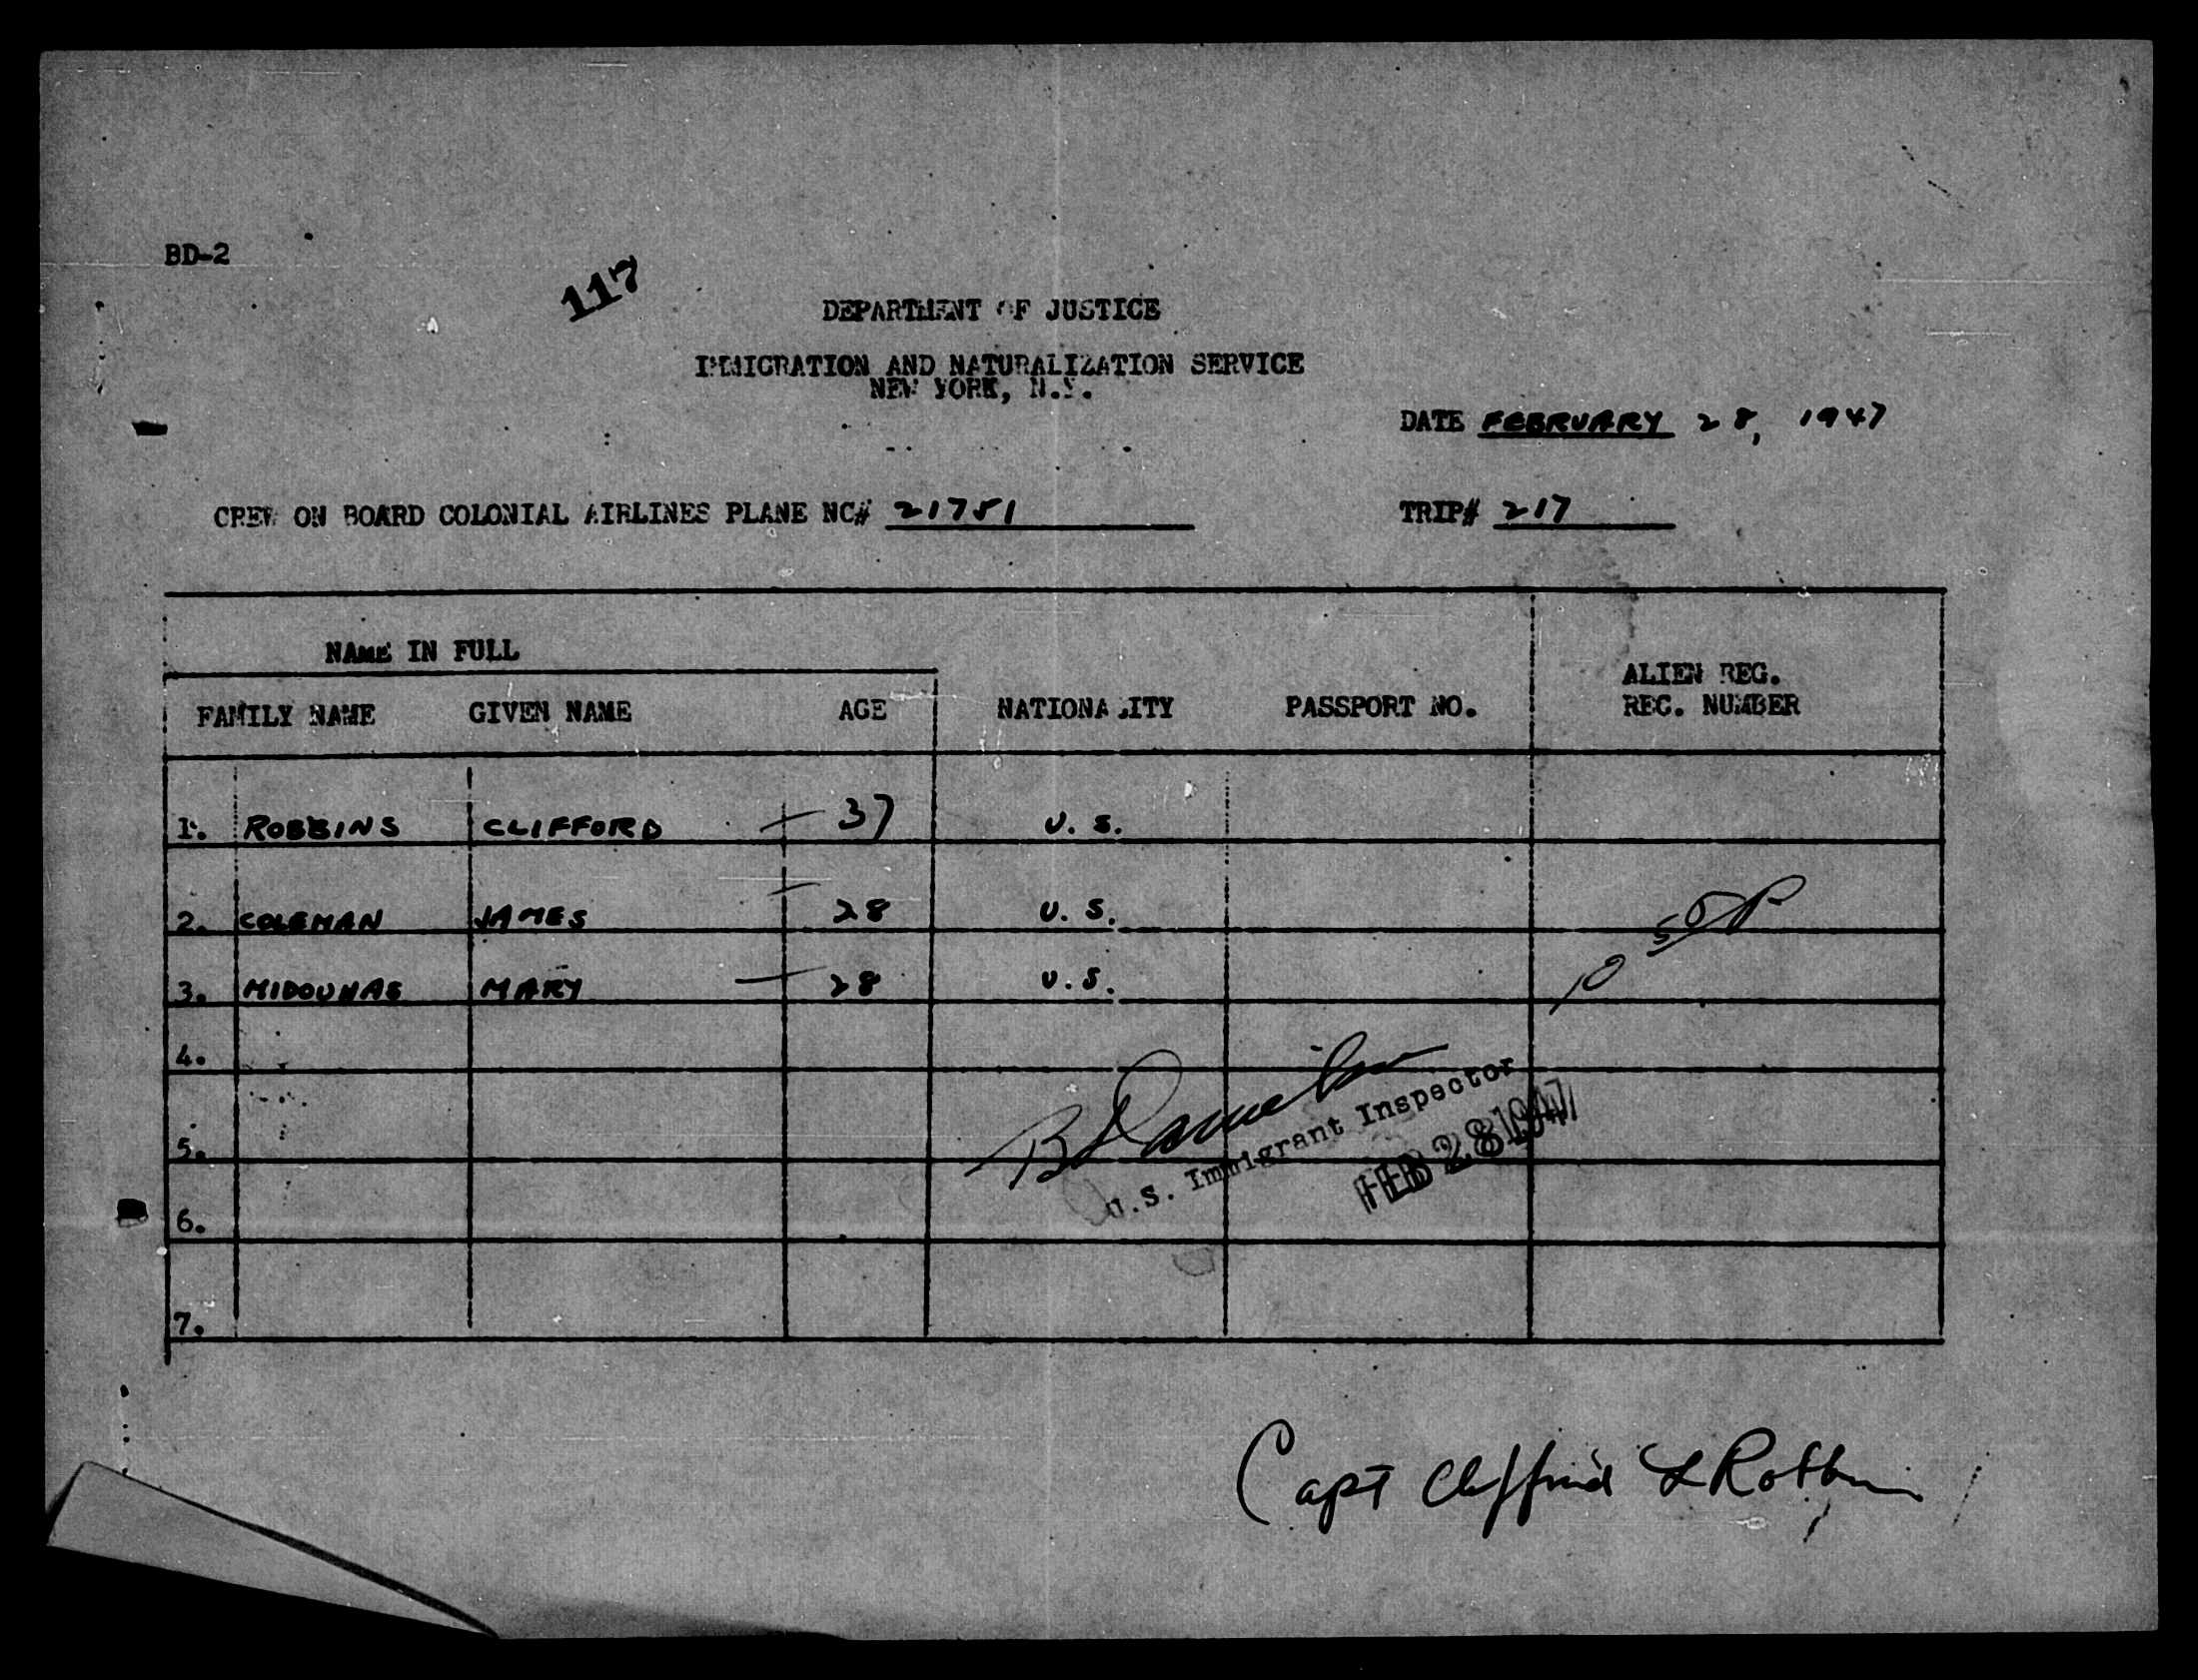 BD-2
117
DEPARTMENT OF JUSTICE
IMMIGRATION AND NATURALIZATION SERVICE
NEW YORK, N.Y.
DATE FEBRUARY 28, 1947
CREW ON BOARD COLONIAL AIRLINES PLANE NC# 21751 TRIP# 217
NAME IN FULL
FAMILY NAME GIVEN NAME AGE NATIONALITY PASSPORT NO. ALIEN REG. REC. NUMBER
1. ROBBINS CLIFFORD 37 U.S.
2. COLEMAN JAMES 28 U.S.
3. MIDOUNAS MARY 28 U.S.
4.
5.
6.
7.
U.S. Immigrant Inspector
FEB 28 1947
Capt Clifford L Robbins